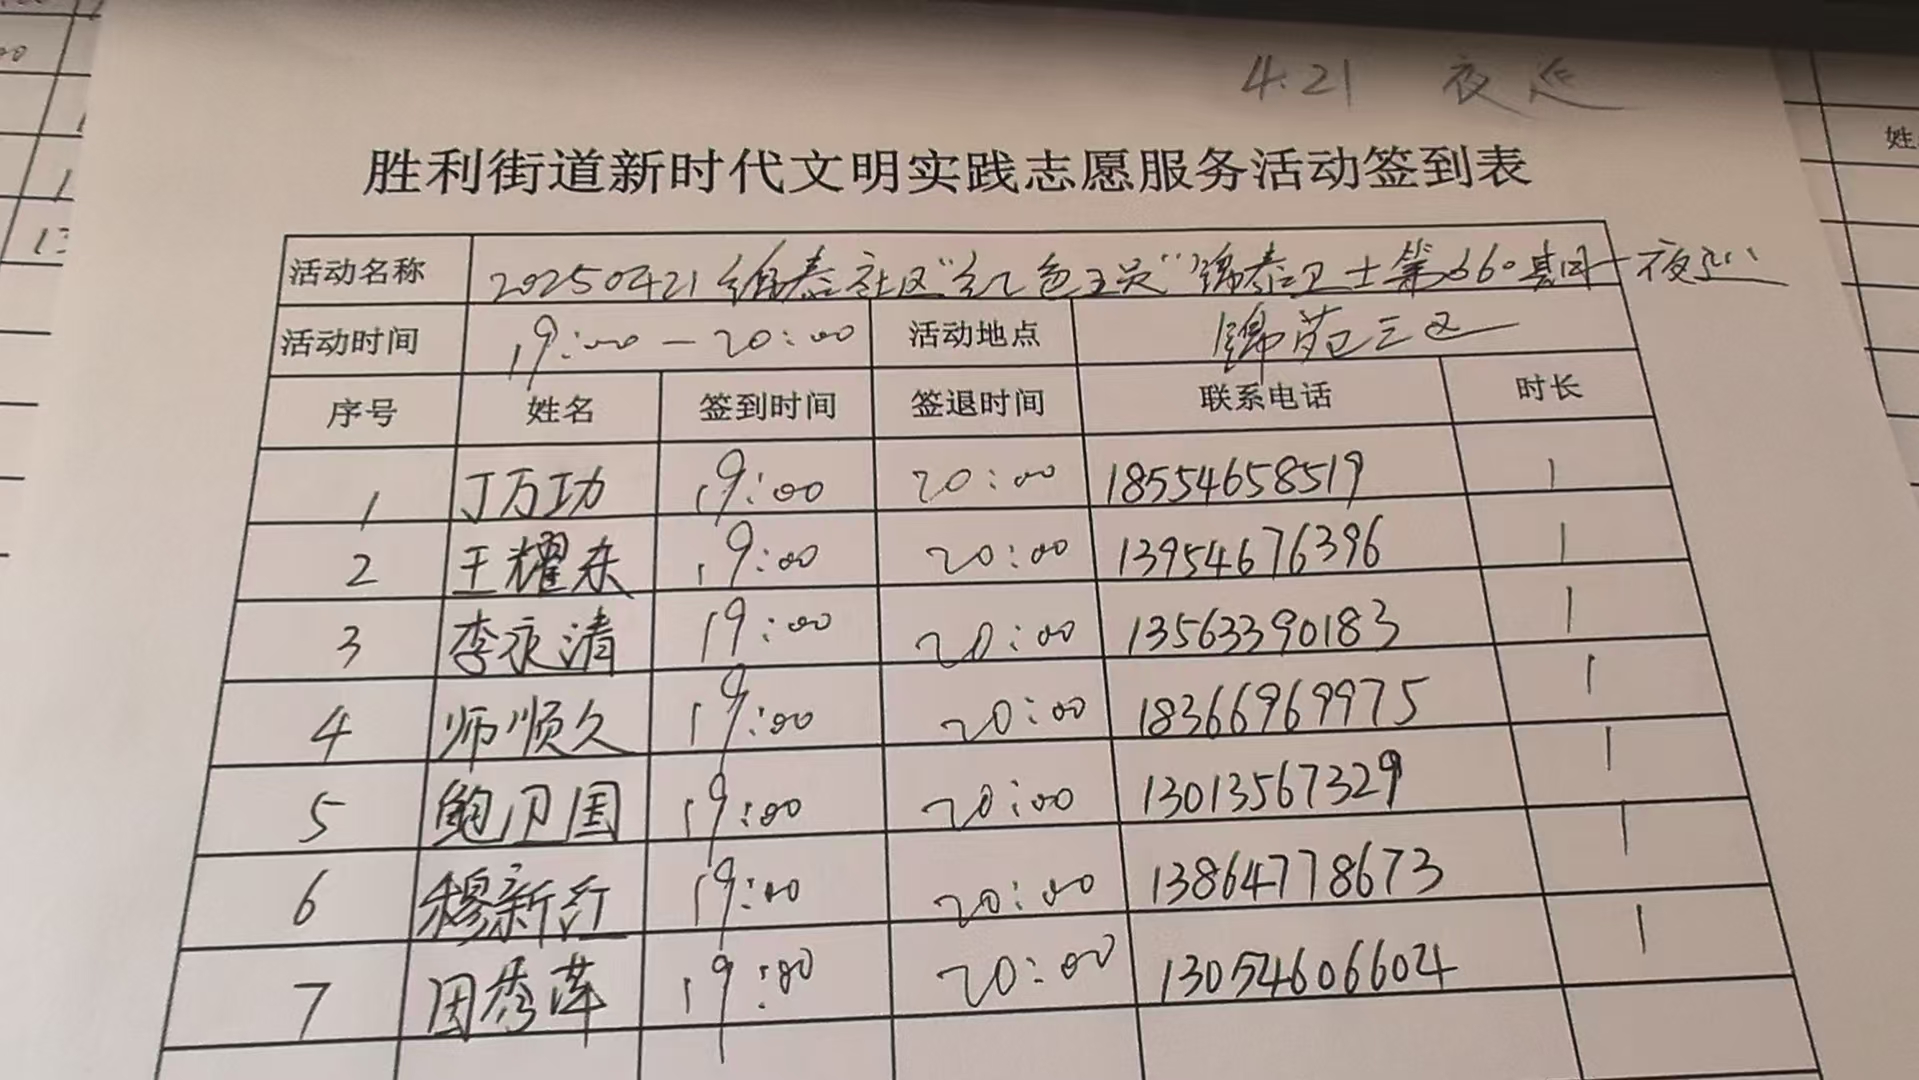 4.21 夜巡
胜利街道新时代文明实践志愿服务活动签到表
活动名称 20250421锦泰社区"红色主炎"锦泰卫士第660期一夜巡
活动时间 19:00-20:00 活动地点 锦苑三区
序号 姓名 签到时间 签退时间 联系电话 时长
1 丁万功 19:00 20:00 18554658519 1
2 王耀东 19:00 20:00 13954676396 1
3 李永清 19:00 20:00 13563390183 1
4 师顺久 19:00 20:00 18366969975 1
5 鲍卫国 19:00 20:00 13013567329 1
6 穆新红 19:00 20:00 13864778673 1
7 周秀萍 19:00 20:00 13054606604 1
姓